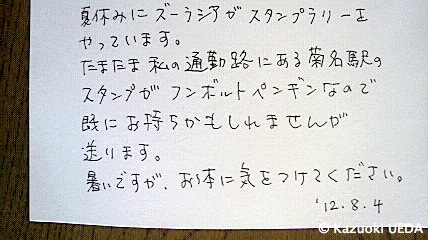 夏休みにズーラシアがスタンプラリーを
やっています。
たまたま私の通勤路にある菊名駅の
スタンプがフンボルトペンギンなので
既にお持ちかもしれませんが
送ります。
暑いですが、お体に気をつけてください。
'12.8.4
© Kazuoki UEDA